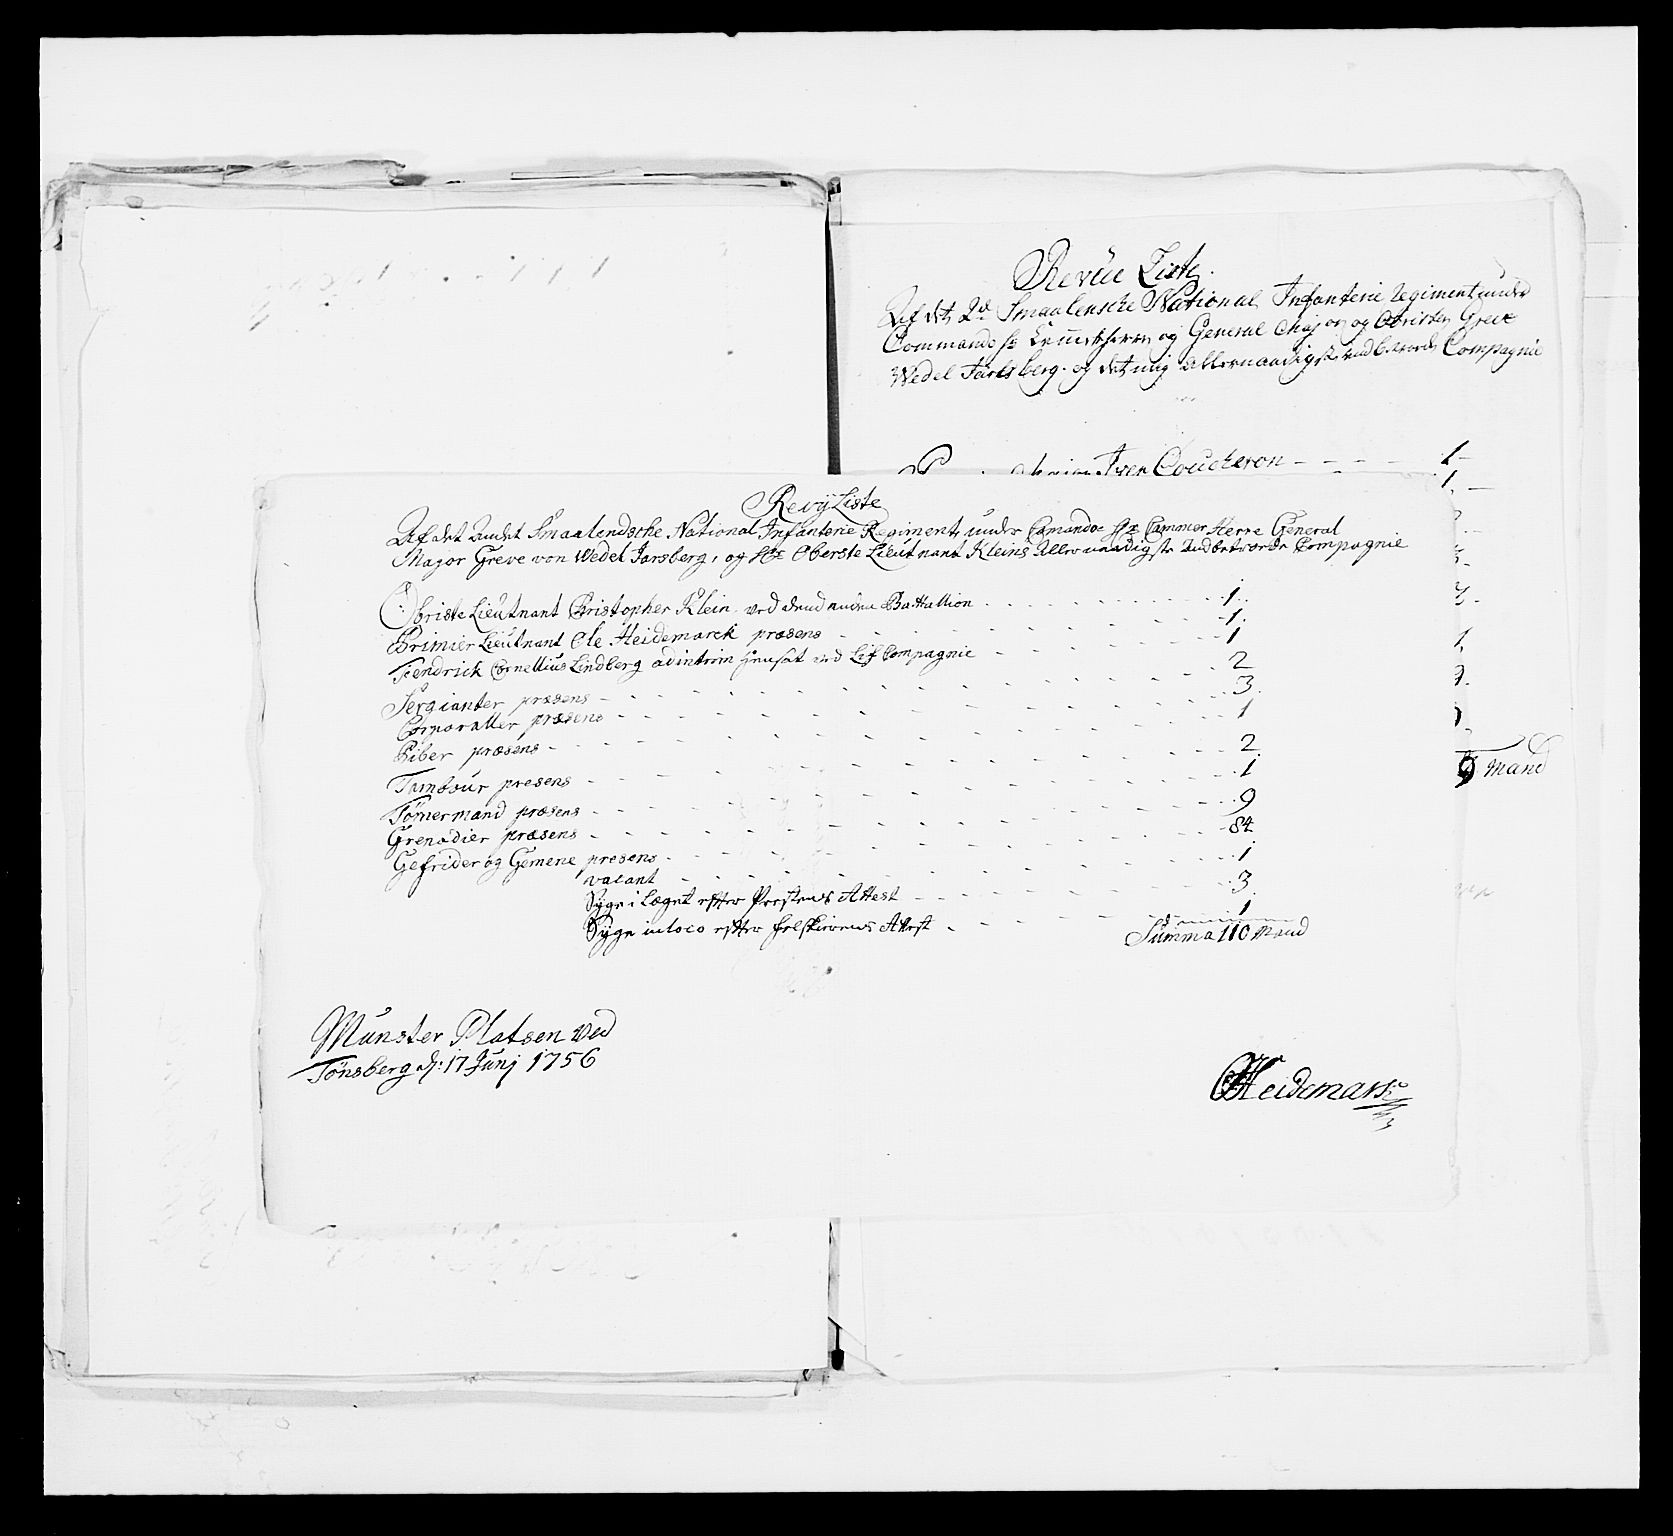 Revüe Liste
Af det 2d Smaalensche National Infanterie Regiment under
Commando og General Major og Obrister Greve
Wedel Jarlsberg. og det mig allernaadigst andbetroede Compagnie
Iver Coucheron - - - - - 1 -
1. -
9 Mand
Revÿ Liste
Af det Andet Smaalendsche National Infanterie Regiment, under Comando Hr Cammer Herre General
Major Greve von Wedel Jarsberg, og Hr Oberste Lieutnant Kleins Allernaadigste Andbetroede Compagnie
Obriste Lieutnant Christopher Klein ved dend anden Battallion - - - 1.
Primier Lieutnant Ole Heidemarck præsens - - - 1.
Fendrick Cornellius Lindberg adintrim hensat ved Lif Compagnie - - - 1
Sergianter præsens - - - 2
Corporaller præsens - - - 3
Piber præsens - - - 1
Tambour presens - - - 2
Tömermand præsens - - - 1
Grenadier præsens - - - 9
Gefrider og Gemene presens - - - 84
vacant - - - 1
Syge i Læget efter Prestens Attest - - - 3
Syge in loco efter feltskierens Attest - - - 1
Summa 110 Mand
Munster Platsen ved
Tönsberg d: 17 Junj 1756
OHeidemarck